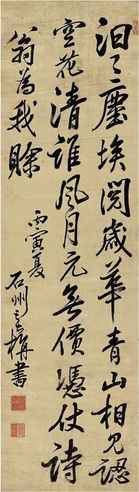 汩汩塵埃閱歲華青山相見認
空花清誰風月元無價憑仗詩
翁為我賒
丙寅夏
石州
梅書